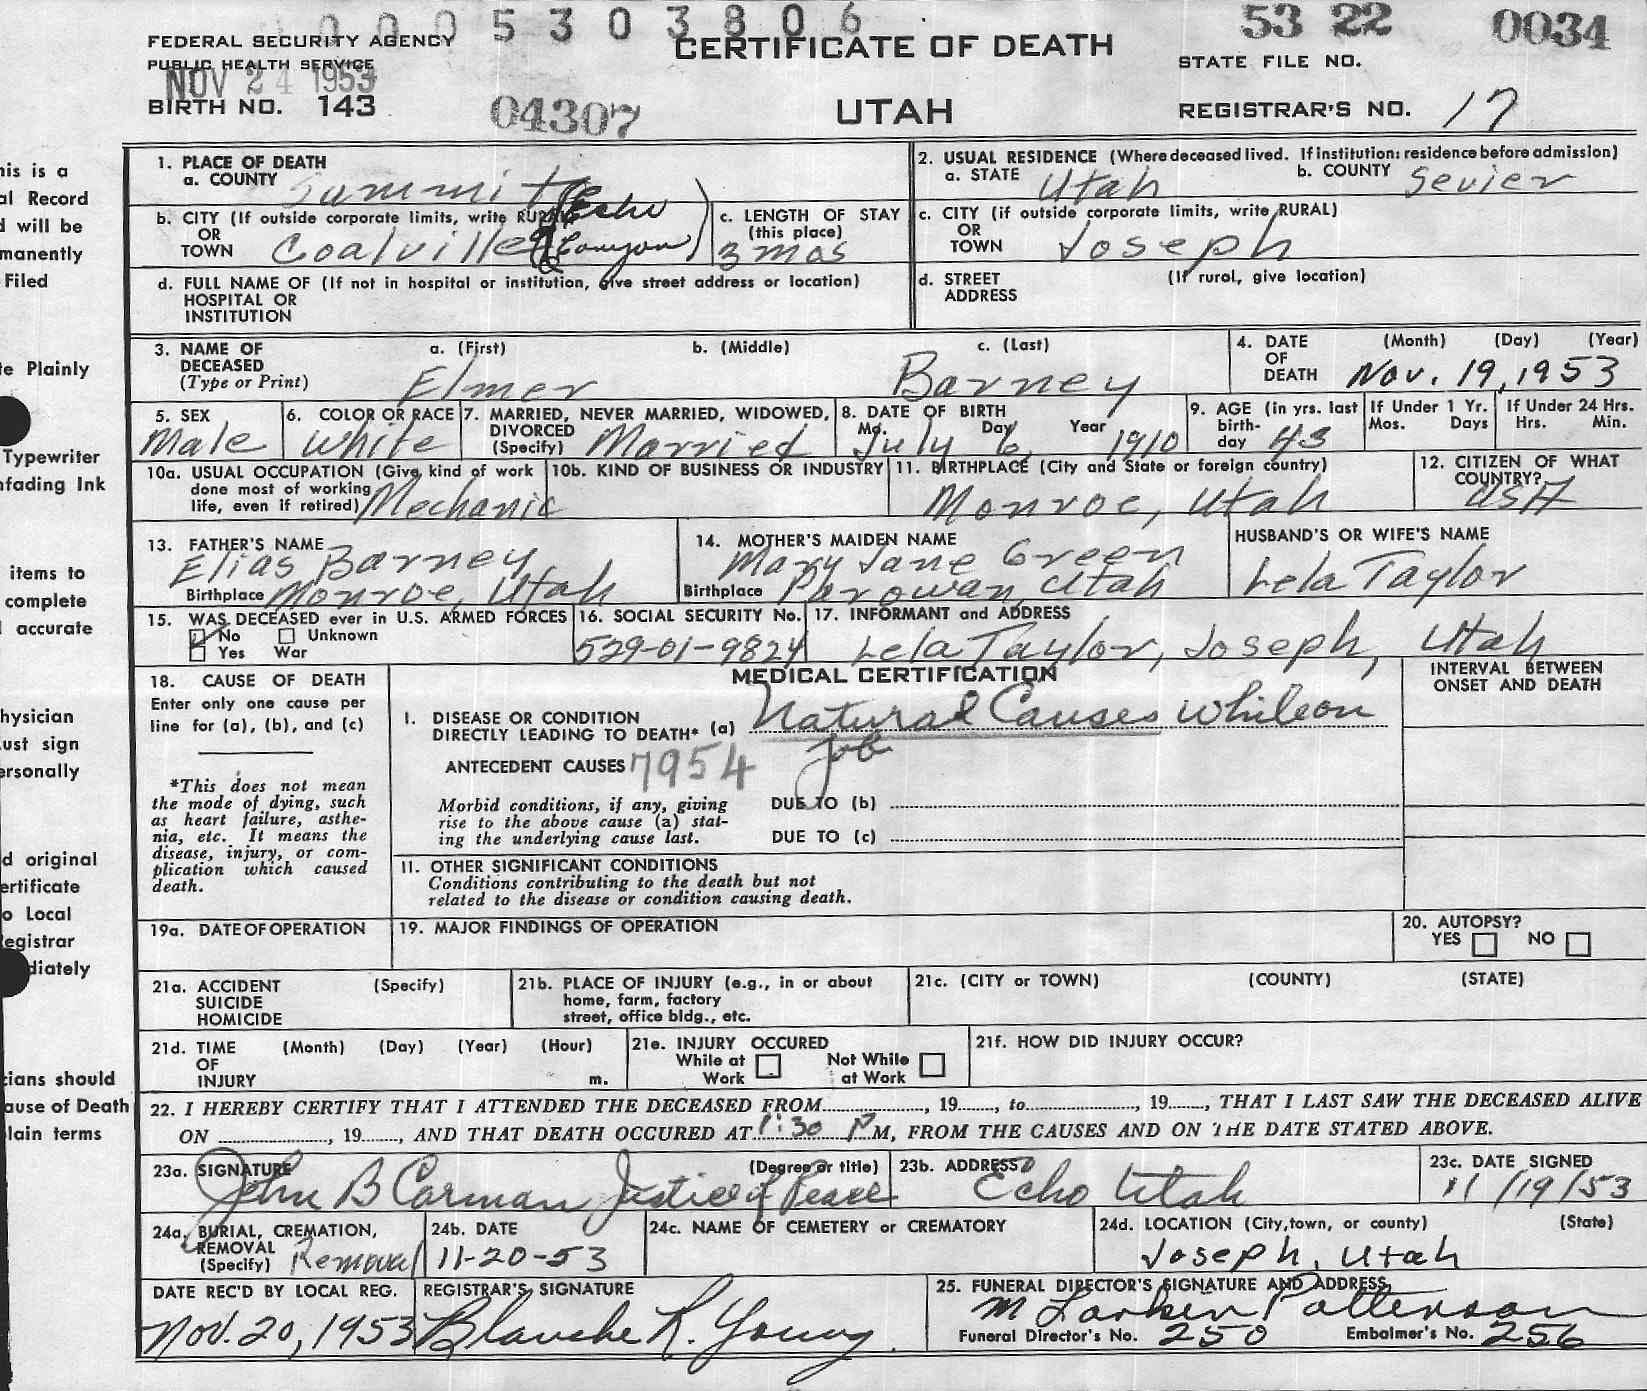 0 0 0 5 3 0 3 8 0 6
53 22 0034
FEDERAL SECURITY AGENCY
PUBLIC HEALTH SERVICE
NOV 24 1953
BIRTH NO. 143
04307
CERTIFICATE OF DEATH
UTAH
STATE FILE NO.
REGISTRAR'S NO. 17
his is a
al Record
d will be
manently
Filed
te Plainly
Typewriter
nfading Ink
items to
complete
accurate
hysician
ust sign
ersonally
d original
ertificate
o Local
egistrar
diately
cians should
ause of Death
lain terms
1. PLACE OF DEATH
a. COUNTY Summit
2. USUAL RESIDENCE (Where deceased lived. If institution: residence before admission)
a. STATE Utah b. COUNTY Sevier
b. CITY (If outside corporate limits, write RURAL)
OR
TOWN Coalville (Echo Canyon)
c. LENGTH OF STAY
(this place)
3 mos
c. CITY (if outside corporate limits, write RURAL)
OR
TOWN Joseph
d. FULL NAME OF (If not in hospital or institution, give street address or location)
HOSPITAL OR
INSTITUTION
d. STREET (If rural, give location)
ADDRESS
3. NAME OF DECEASED (Type or Print)
a. (First) b. (Middle) c. (Last)
Elmer Barney
4. DATE OF DEATH (Month) (Day) (Year)
Nov. 19, 1953
5. SEX
Male
6. COLOR OR RACE
White
7. MARRIED, NEVER MARRIED, WIDOWED,
DIVORCED
(Specify) Married
8. DATE OF BIRTH
Mo. Day Year
July 6, 1910
9. AGE (in yrs. last
birth-
day 43
If Under 1 Yr.
Mos. Days
If Under 24 Hrs.
Hrs. Min.
10a. USUAL OCCUPATION (Give kind of work
done most of working
life, even if retired) Mechanic
10b. KIND OF BUSINESS OR INDUSTRY
11. BIRTHPLACE (City and State or foreign country)
Monroe, Utah
12. CITIZEN OF WHAT
COUNTRY?
USA
13. FATHER'S NAME
Elias Barney
Birthplace Monroe, Utah
14. MOTHER'S MAIDEN NAME
Mary Jane Green
Birthplace Parowan, Utah
HUSBAND'S OR WIFE'S NAME
Lela Taylor
15. WAS DECEASED ever in U.S. ARMED FORCES
No Unknown
Yes War
16. SOCIAL SECURITY No.
529-01-9824
17. INFORMANT and ADDRESS
Lela Taylor, Joseph, Utah
18. CAUSE OF DEATH
Enter only one cause per
line for (a), (b), and (c)
*This does not mean
the mode of dying, such
as heart failure, asthe-
nia, etc. It means the
disease, injury, or com-
plication which caused
death.
MEDICAL CERTIFICATION
INTERVAL BETWEEN
ONSET AND DEATH
I. DISEASE OR CONDITION
DIRECTLY LEADING TO DEATH* (a) Natural Causes while on
job
ANTECEDENT CAUSES 7954
Morbid conditions, if any, giving
rise to the above cause (a) stat-
ing the underlying cause last.
DUE TO (b)
DUE TO (c)
11. OTHER SIGNIFICANT CONDITIONS
Conditions contributing to the death but not
related to the disease or condition causing death.
19a. DATE OF OPERATION
19. MAJOR FINDINGS OF OPERATION
20. AUTOPSY?
YES NO
21a. ACCIDENT (Specify)
SUICIDE
HOMICIDE
21b. PLACE OF INJURY (e.g., in or about
home, farm, factory
street, office bldg., etc.
21c. (CITY or TOWN) (COUNTY) (STATE)
21d. TIME (Month) (Day) (Year) (Hour)
OF
INJURY m.
21e. INJURY OCCURED
While at Work
Not While at Work
21f. HOW DID INJURY OCCUR?
22. I HEREBY CERTIFY THAT I ATTENDED THE DECEASED FROM , 19 , to , 19 , THAT I LAST SAW THE DECEASED ALIVE
ON , 19 , AND THAT DEATH OCCURED AT 1:30 P M, FROM THE CAUSES AND ON THE DATE STATED ABOVE.
23a. SIGNATURE (Degree or title)
John B Carman Justice of Peace
23b. ADDRESS
Echo Utah
23c. DATE SIGNED
11/19/53
24a. BURIAL, CREMATION,
REMOVAL
(Specify) Removal
24b. DATE
11-20-53
24c. NAME OF CEMETERY or CREMATORY
24d. LOCATION (City, town, or county) (State)
Joseph, Utah
DATE REC'D BY LOCAL REG.
Nov. 20, 1953
REGISTRAR'S SIGNATURE
Blanche R. Young
25. FUNERAL DIRECTOR'S SIGNATURE AND ADDRESS
M Larkin Patterson
Funeral Director's No. 250 Embalmer's No. 256